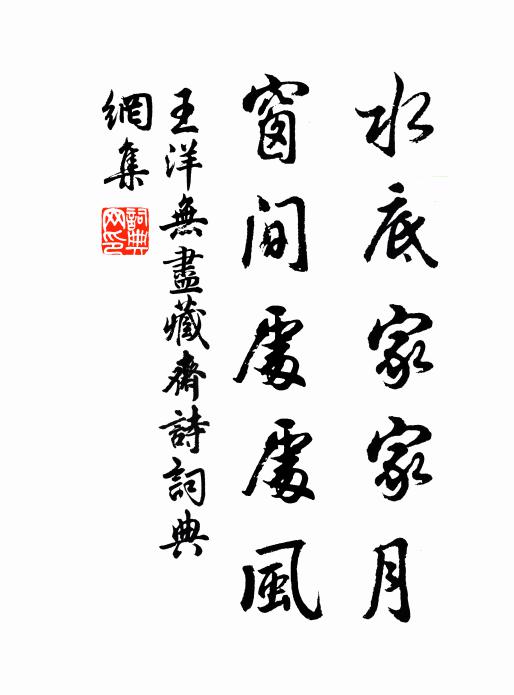 水底家家月
窗間處處風
王洋無盡藏齋詩詞典
網集
詞典
网印